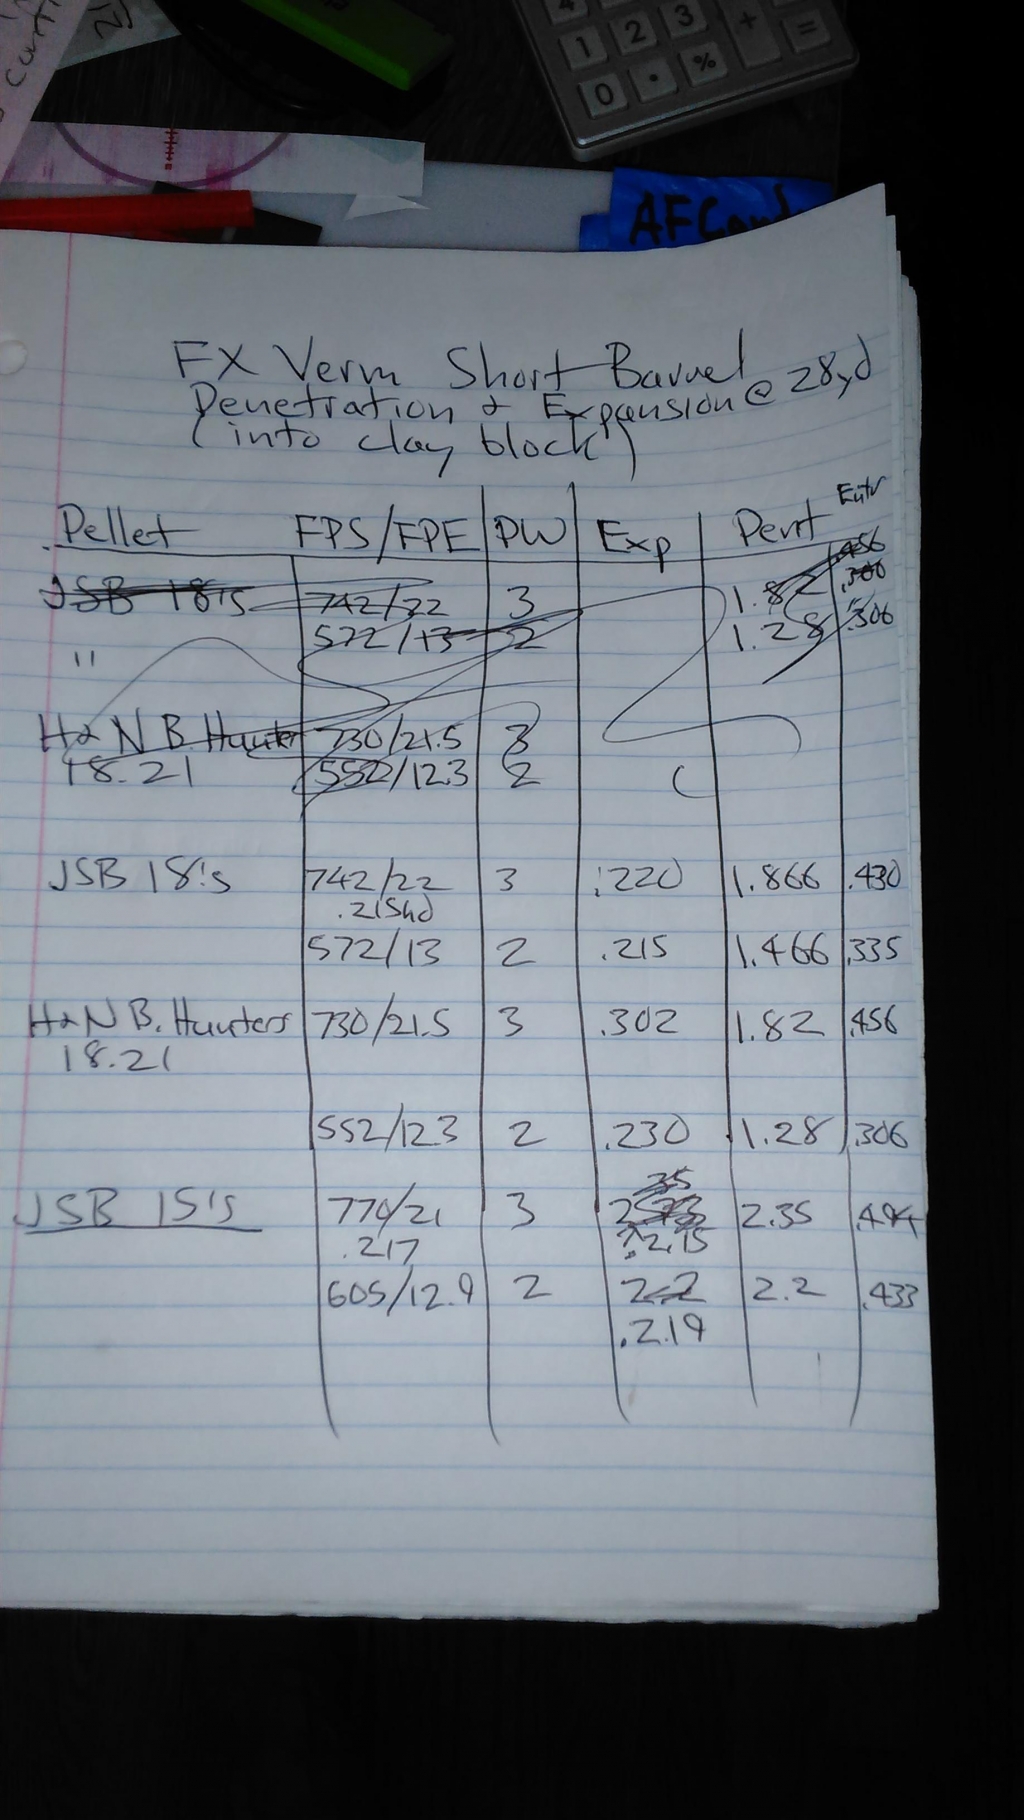 4
1 2 3 + =
0 . %
FX Verm Short Barrel
Penetration & Expansion @ 28yd
(into clay block)
Pellet FPS/FPE PW Exp Pent Entr
JSB 18's 742/22 3 1.82 .456
.306
" 572/13 2 1.28 .306
H&N B. Hunter 730/21.5 3
18.21 552/12.3 2
JSB 18's 742/22 3 .220 1.866 .430
572/13 2 .215 1.466 .335
H&N B. Hunters 730/21.5 3 .302 1.82 .456
18.21
552/123 2 .230 1.28 .306
JSB 15's 770/21 3 2.35 .494
.217 .215
605/12.9 2 2.2 2.2 .433
.219